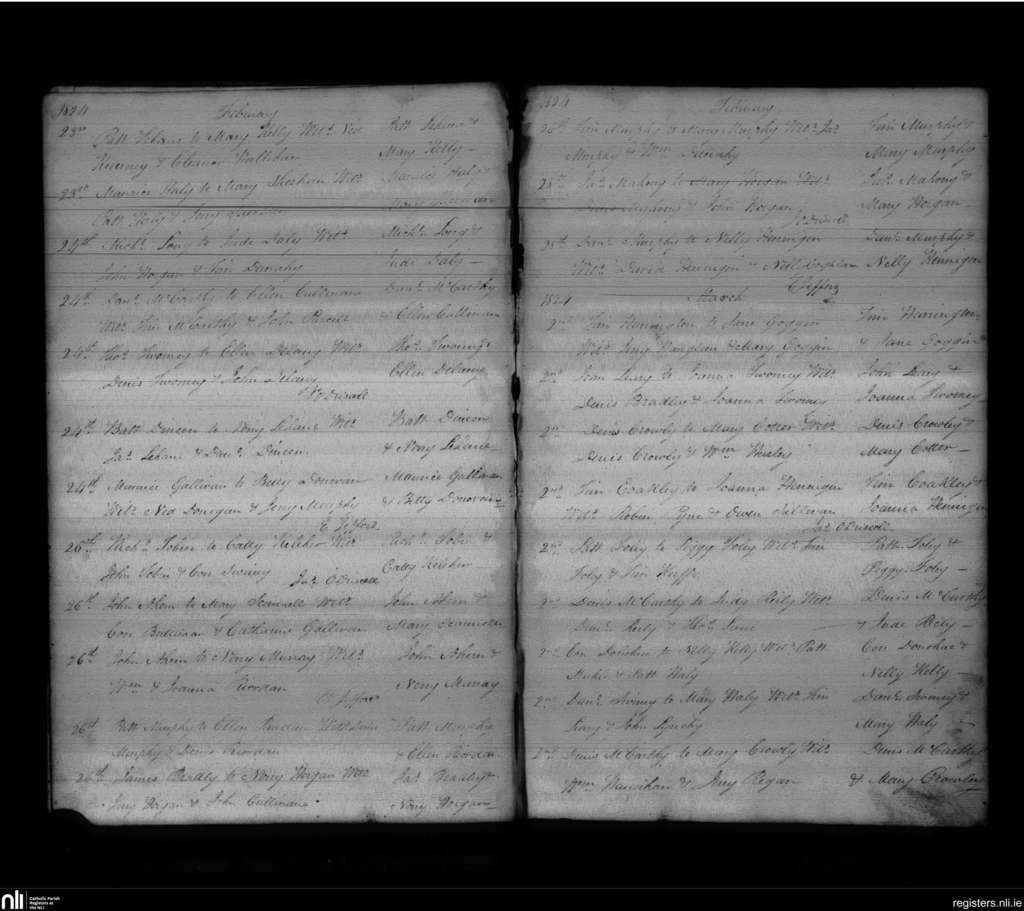 1824 February
23rd Patt Lehane to Mary Kelly Wits. Ned Patt Lehane &
Kearney & Eleanor Hallihan Mary Kelly —
23rd Maurice Haly to Mary Sheehan Wits. Maurice Haly &
Patt Haly & Jerry Mary Sheehan
24th Michl. Long to Jude Daly Wits. Michl. Long &
John Horgan & Tim Danahy Jude Daly —
24th Danl. McCarthy to Ellen Cullinane Danl. McCarthy
Wits. Tim McCarthy & John Purcell & Ellen Cullinane
24th Thos. Twomey to Ellen Delany Wits. Thos. Twomey &
Denis Twomey & John Delany Ellen Delany
O'Driscoll
24th Batt Dineen to Nory Lehane Wits. Batt Dineen
Jas. Lehane & Danl. Dineen & Nory Lehane
24th Maurice Gallivan to Betty Donovan Maurice Gallivan
Wits. Ned Donegan & Jerry Murphy & Betty Donovan
26th Richd. Tobin to Catty Keliher Wits. Richd. Tobin &
John Tobin & Con Twomy Catty Keliher
Jas. O'Driscoll
26th John Ahern to Mary Wits. John Ahern &
Con Sullivan & Catharine Gallivan Mary
26th John Ahern to Nory Murray Wits. John Ahern &
Wm. & Joanna Riordan Nory Murray
26th Patt Murphy to Ellen Riordan Wits. Patt Murphy
Murphy & Denis Riordan & Ellen Riordan
26th James Bradly to Nory Horgan Wits. Jas. Bradley &
Jerry Horgan & John Cullinane Nory Horgan
1824 February
26th Tim Murphy to Mary Murphy Wits. Jas. Tim Murphy &
Murphy & Wm. Danahy Mary Murphy
28th Jas. Mahony to Mary Horgan Wits. Jas. Mahony &
Denis Mahony & John Horgan Mary Horgan —
O'Driscoll
Danl. Murphy to Nelly Hennigan Danl. Murphy &
Wits. David Hennigan & Nell Coghlan Nelly Hennigan
1824 March
2nd Tim Harrington to Jane Goggin Tim Harrington
Wits. Jerry Vaughan & Mary Goggin & Jane Goggin
2nd Joan Leary to Joanna Twomey Wits. Joan Leary &
Denis Bradley & Joanna Twomey Joanna Twomey
2nd Denis Crowly to Mary Cotter Wits. Denis Crowley &
Denis Crowly & Wm. Mary Cotter —
2nd Tim Coakley to Joanna Hennigan Tim Coakley &
Wits. Robin Pyne & Owen Sullivan Joanna Hennigan
Jas. O'Driscoll
2nd Patt Foley to Peggy Foley Wits. Tim Patt Foley &
Foley & Tim Peggy Foley —
2nd Denis McCarthy to Judy Reily Wits. Denis McCarthy
Danl. Reily & Thos. & Jude Reily —
2nd Con Donohue to Nelly Kelly Wits. Patt Con Donohue &
& Patt Haly Nelly Kelly —
2nd Danl. Twomy to Mary Haly Wits. Tim Danl. Twomey &
Leary & John Lynchy Mary Haly —
2nd Denis McCarthy to Mary Crowly Wits. Denis McCarthy
Wm. & Jerry Regan & Mary Crowley
nli
Catholic Parish
Registers at
the NLI
registers.nli.ie